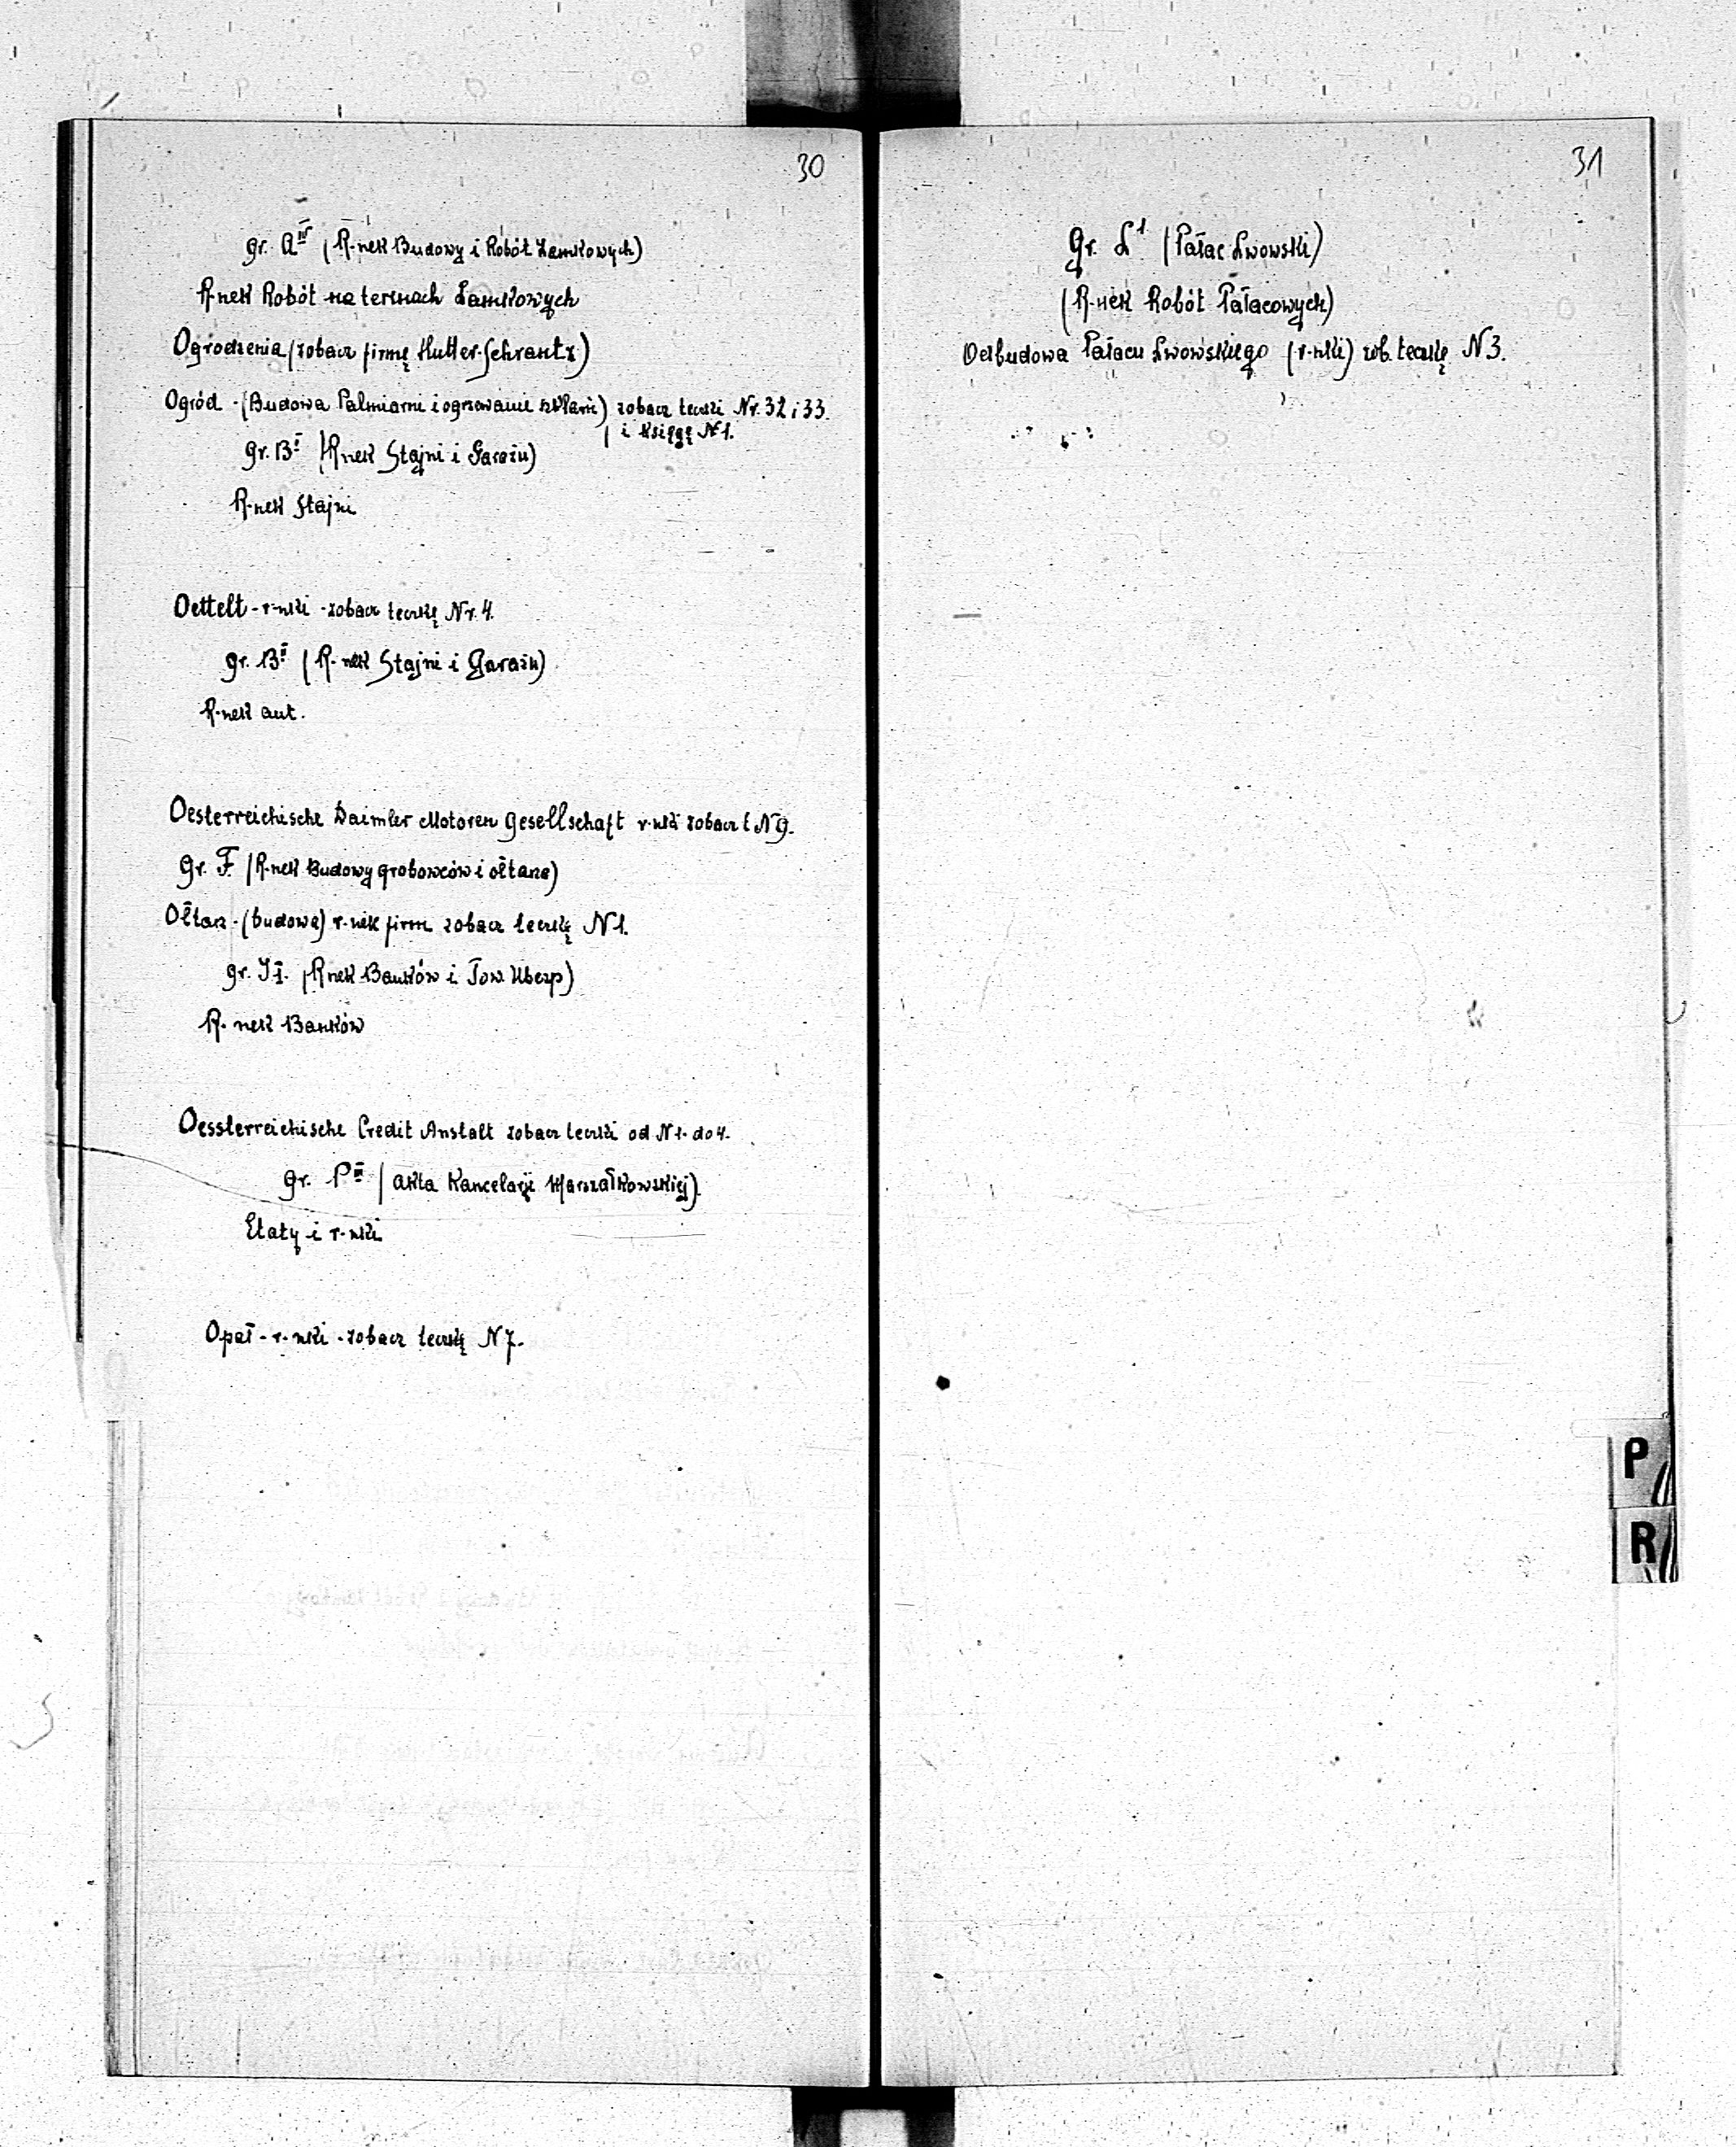 30
gr. A IV (R-nek Budowy i Robót Zamkowych)
R-nek Robót na terenach Zamkowych
Ogrodzenia (zobacz firmę Hutter-Schrantz)
Ogród - (Budowa Palmiarni i ogrzewanie szklarń) zobacz teczki Nr. 32 i 33.
i księgę N 1.
gr. B I (R-nek Stajni i Garażu)
R-nek Stajni
Oettelt - r-nki - zobacz teczkę Nr. 4.
gr. B II (R-nek Stajni i Garażu)
R-nek aut.
Oesterreichische Daimler Motoren Gesellschaft r-nki zobacz t N 9.
gr. F. (R-nek Budowy grobowców i ołtarza)
Ołtarz - (budowa) r-nek firm zobacz teczkę N 1.
gr. J I. (R-nek Banków i Tow. Ubezp)
R-nek Banków
Oessterreichische Credit Anstalt zobacz teczki od N 1. do 4.
gr. P III (akta Kancelarji Marszałkowskiej).
Etaty i r-nki
Opał - r-nki - zobacz teczkę N 7.
31
gr. L 1 (Pałac Lwowski)
(R-nek Robót Pałacowych)
Odbudowa Pałacu Lwowskiego (r-nki) zob. teczkę N 3.
P
R